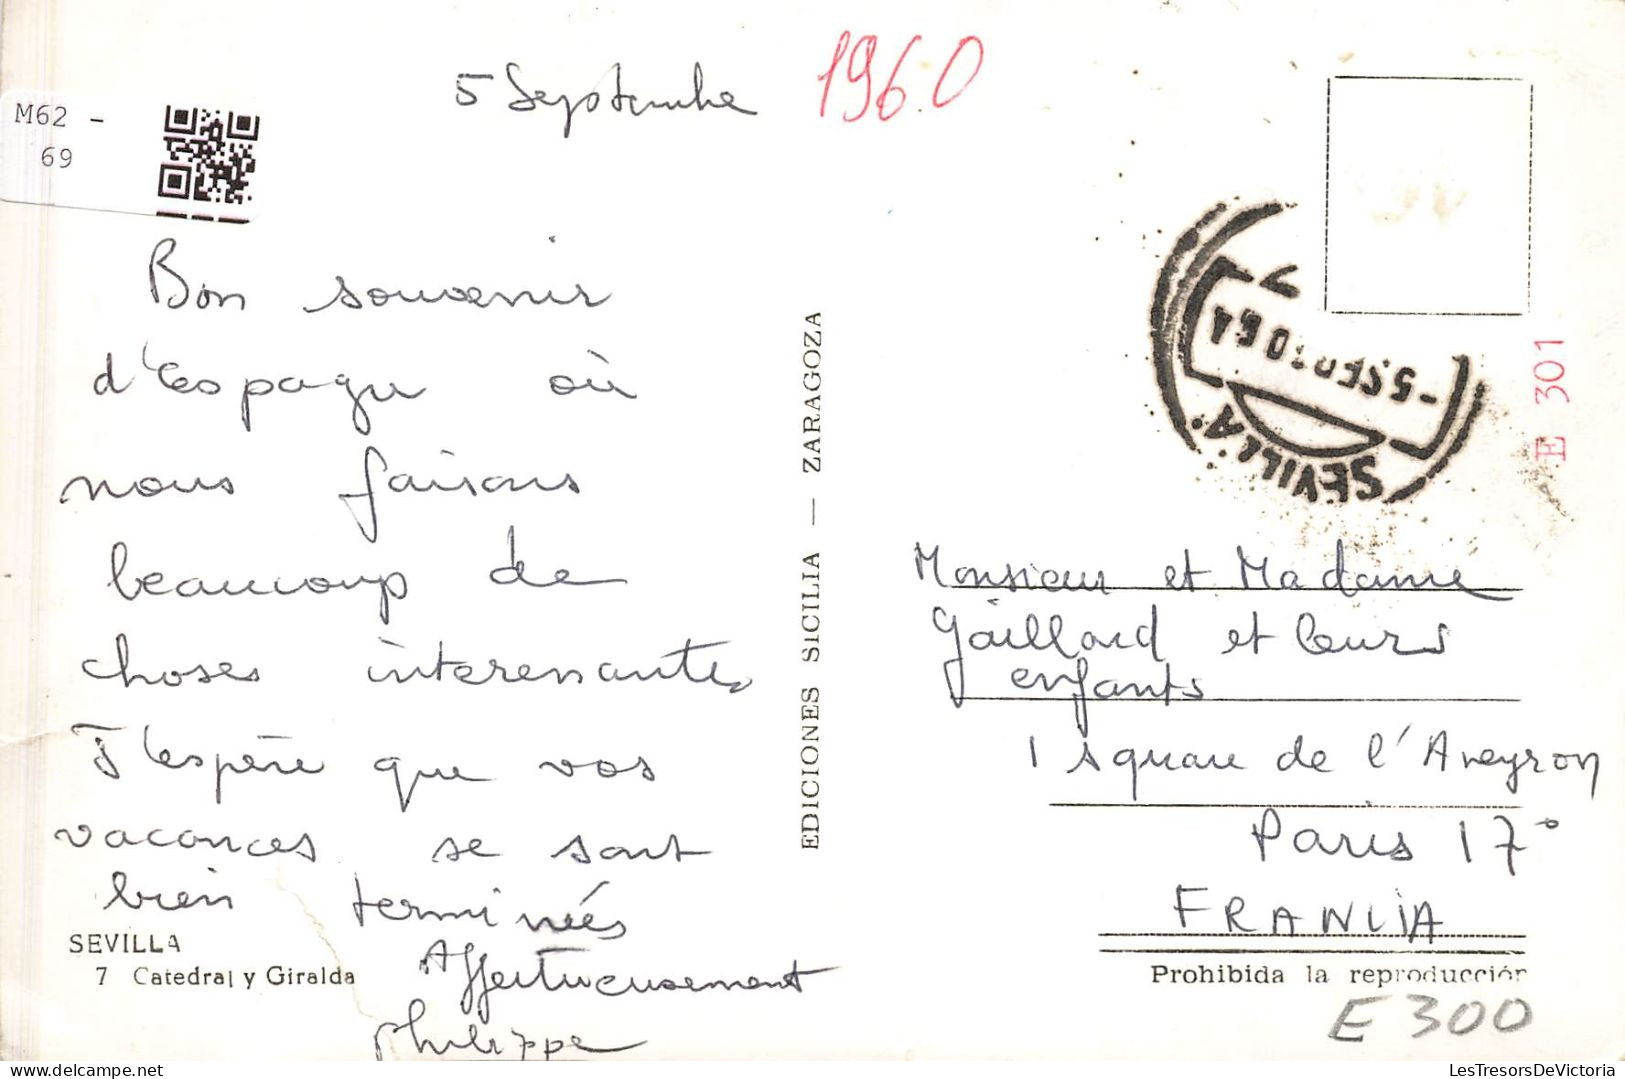 5 Septembre 1960
M62 -
69
Bon souvenir
d'Espagne où
nous faisons
beaucoup de
choses interessantes
J'espère que vos
vacances se sont
bien terminées
Affectueusement
Philippe
SEVILLA
7 Catedral y Giralda
EDICIONES SICILIA — ZARAGOZA
SEVILLA
E 301
Monsieur et Madame
Gaillard et leurs
enfants
1 square de l'Aveyron
Paris 17°
FRANCIA
Prohibida la reproducción
E 300
LesTresorsDeVictoria